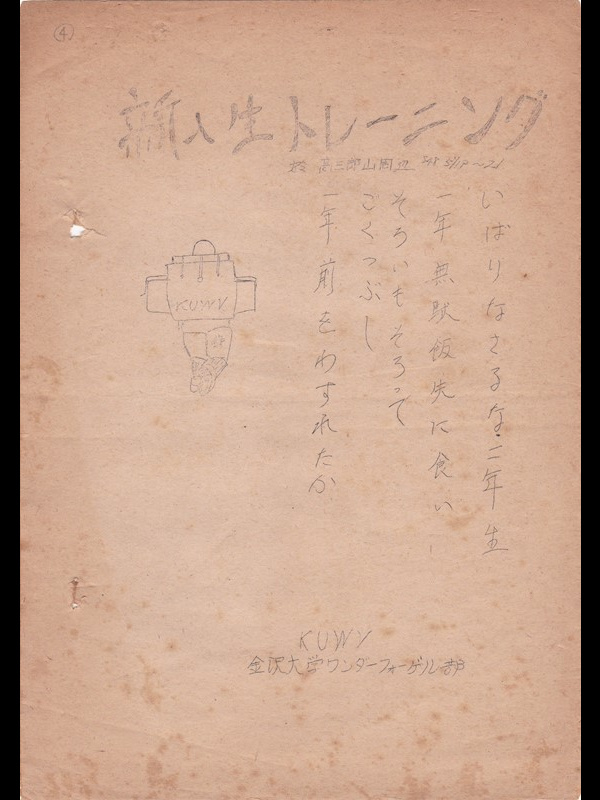 ④
新入生トレーニング
高三郎山周辺
いばりなさるな二年生
一年無駄飯先に食い
そろいもそろって
ごくつぶし
一年前をわすれたか
KUWV
KUWV
金沢大学ワンダーフォーゲル部